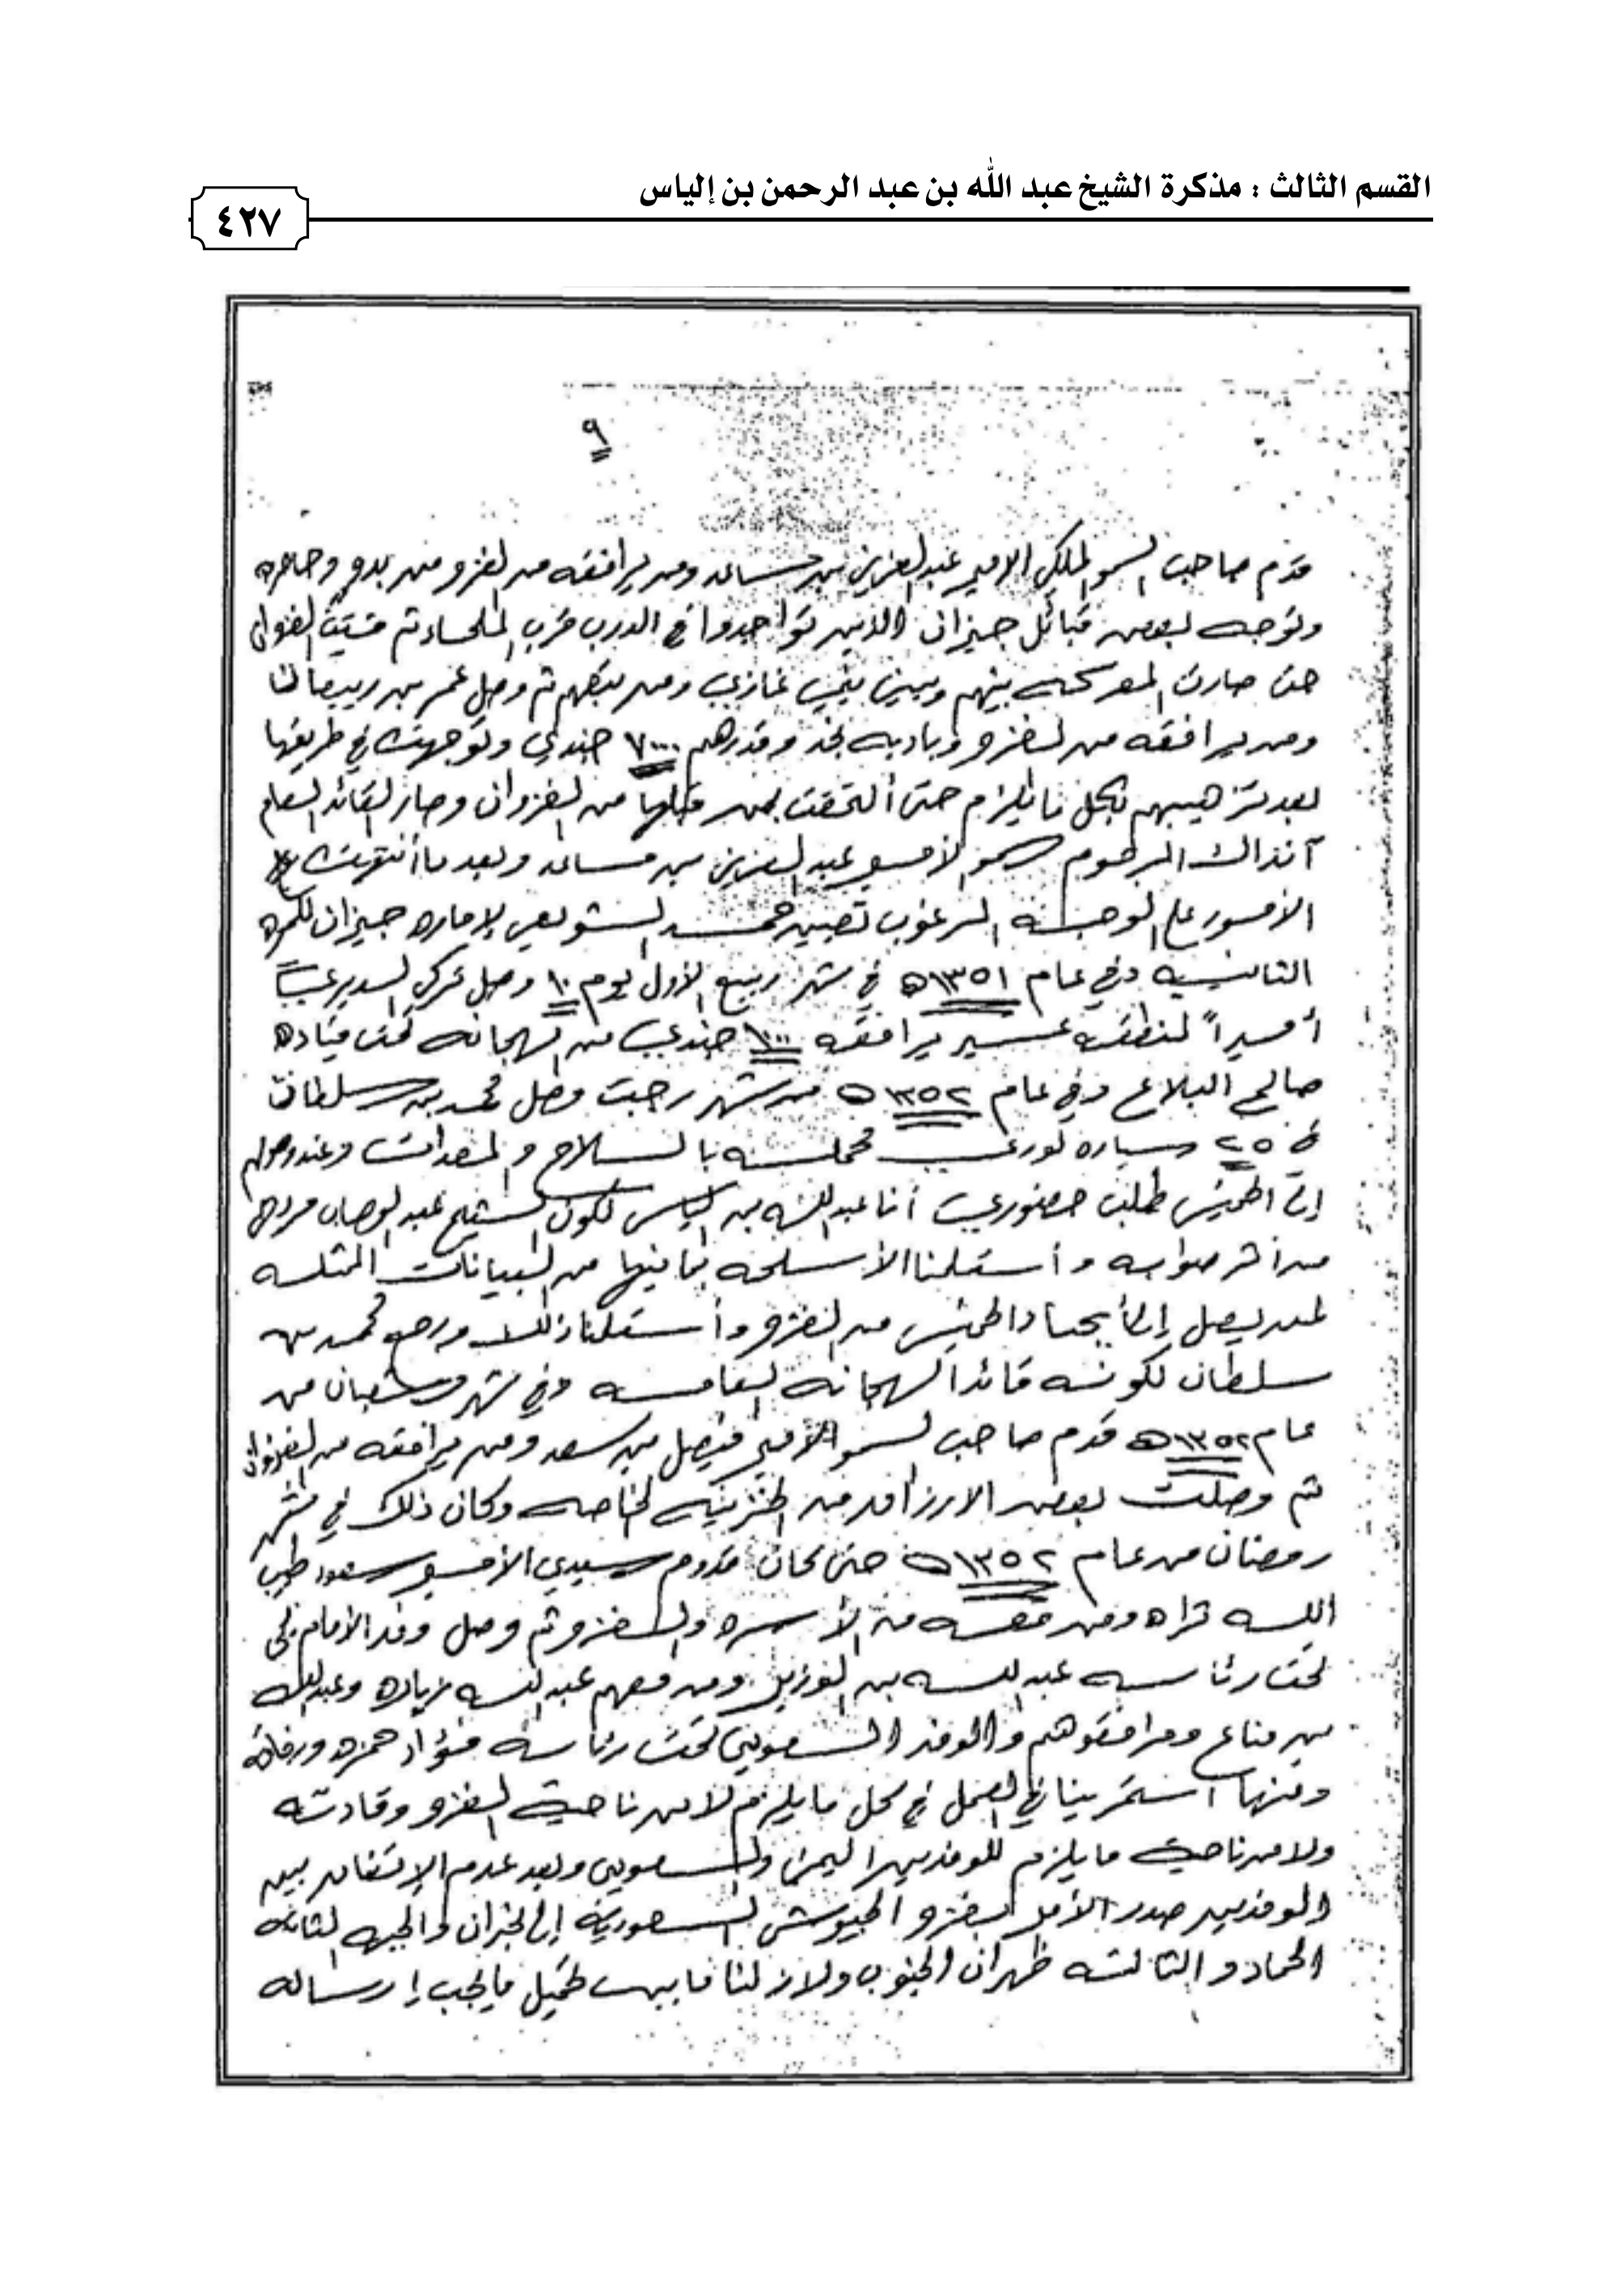 القسم الثالث : مذكرة الشيخ عبد الله بن عبد الرحمن بن إلياس
٤٢٧
٩
قدم صاحب السمو الملكي الامير عبدالعزيز بن مساعد ومن يرافقه من الغزو من بدو وحاضره
وتوجه لبعض قبائل جيزان اللذين تواجدوا في الدرب قرب الملحاء ثم الغزوان
حتى صارت المعركه بينهم وبين غازي ومن ثم وصل عمر بن ربيعان
ومن يرافقه من الغزو وباديه نجد وقدرهم ٧٠٠٠ جندي وتوجهت في طريقها
بعد بكل ما يلزم حتى ألتحقت بمن قبلها من الغزوان وصار القائد العام
آنذاك المرحوم سمو الأمير عبد العزيز بن مساعد وبعد ما أنتهت
الأمور على الوجه المرغوب تعيين حمد الشويعر لإماره جيزان للمره
الثانيه وفي عام ١٣٥١ه في شهر ربيع الأول يوم ١٠ وصل تركي السديري
أميراً لمنطقة عسير يرافقه ١٠٠ جندي من الهجانه تحت قياده
صالح البلاع وفي عام ١٣٥٢ ه من شهر رجب وصل محمد بن سلطان
في ٢٥ سياره لوري محمله بالسلاح والمعدات وعند وصولهم
إلى الخميس طلب حضوري أنا عبدالله بن الياس لكون الشيخ عبد الوهاب
من وأستلمنا الأسلحه بما فيها من البيانات
لمن يصل إلى أبها والخميس من الغزو وأستلمنا ذلك ورجع محمد بن
سلطان لكونه قائد الهجانه العامه وفي شهر شعبان من
عام ١٣٥٢ه قدم صاحب السمو الأمير فيصل بن سعد ومن يرافقه من الغزوان
ثم وصلت بعض الارزاق من الخزينه الخاصه وكان ذلك في شهر
رمضان من عام ١٣٥٢ه حتى كان قدوم سيدي الأمير سعود طيب
الله ثراه ومن معه من الأسره والغزو ثم وصل وفد الأمام يحي
تحت رئاسه عبدالله بن الوزير ومن معهم عبدالله زياره وعبدالله
بن مناع ومرافقوهم والوفد السعودي تحت رئاسة فؤاد حمزه ورفاقه
وعنها استمرينا في العمل في كل ما يلزم لا من ناحية الغزو وقادته
ولا من ناحية ما يلزم للوفدين اليمني والسعودي وبعد عدم الإتفاق بين
الوفدين صدر الأمر بغزو الجيوش السعودية إلى نجران والجبهه الثانيه
الحماد والثالثه ظهران الجنوب ولازلنا ما بين تحميل ما يجب إرساله